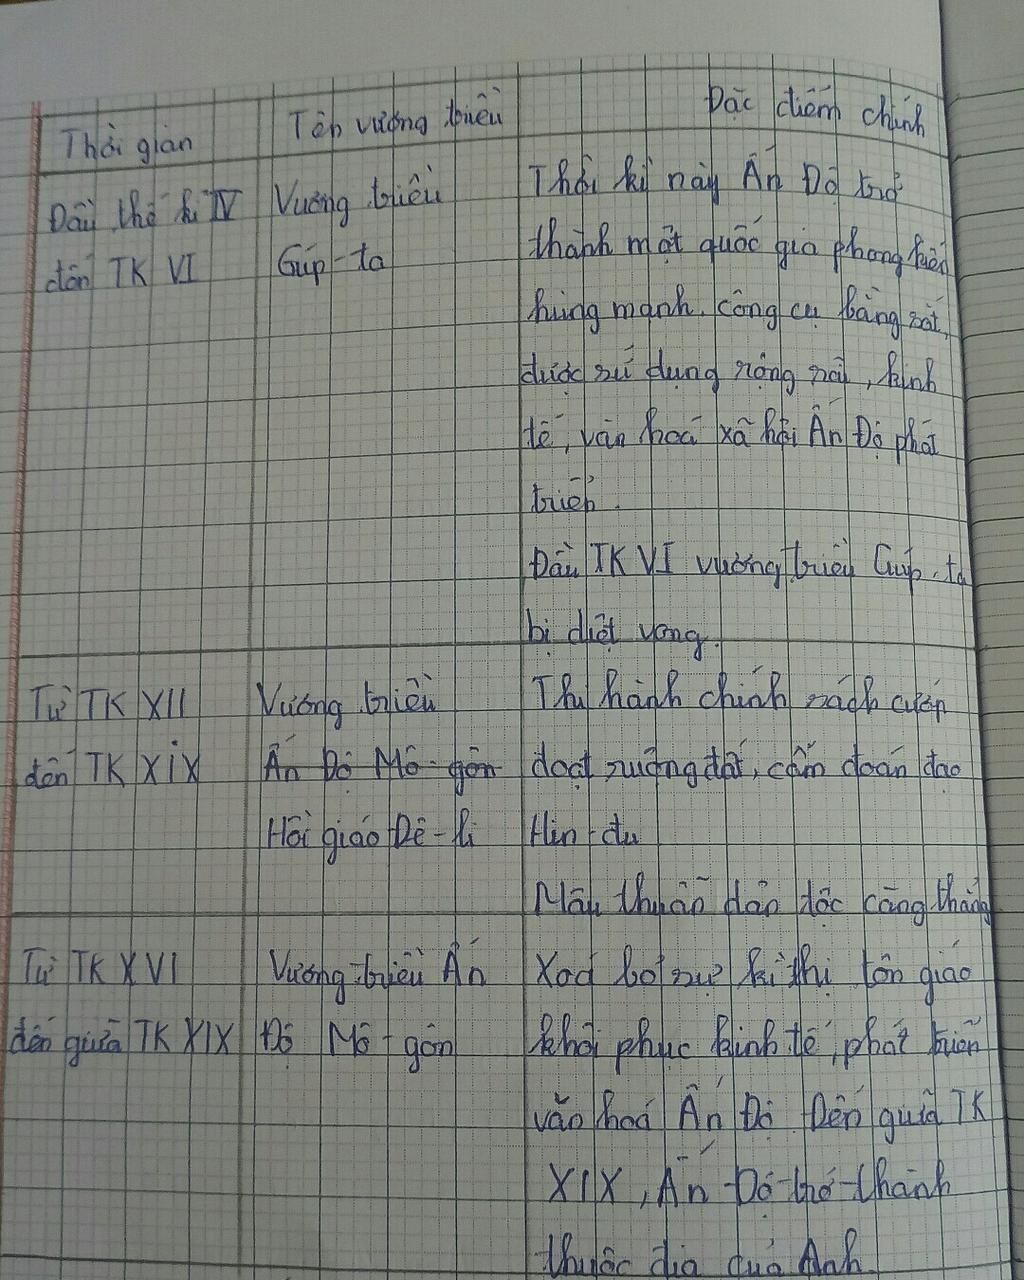 Thời gian
Tên vương triều
Đặc điểm chính
Đầu thế kỉ IV
đến TK VI
Vương triều
Gúp-ta
Thời kì này Ấn Độ trở
thành một quốc gia phong kiến
hùng mạnh. công cụ bằng sắt,
được sử dụng rộng rãi, kinh
tế, văn hoá xã hội Ấn Độ phát
triển.
Đầu TK VI vương triều Gúp-ta
bị diệt vong.
Từ TK XII
đến TK XIX
Vương triều
Ấn Độ Mô-gôn
Hồi giáo Đê-li
Thi hành chính sách cướp
đoạt ruộng đất, cấm đoán đạo
Hin-đu
Mâu thuẫn dân tộc căng thẳng
Từ TK XVI
đến giữa TK XIX
Vương triều Ấn
Độ Mô-gôn
Xoá bỏ sự kì thị tôn giáo
khôi phục kinh tế, phát triển
văn hoá Ấn Độ. Đến giữa TK
XIX, Ấn Độ trở thành
thuộc địa quả Anh.